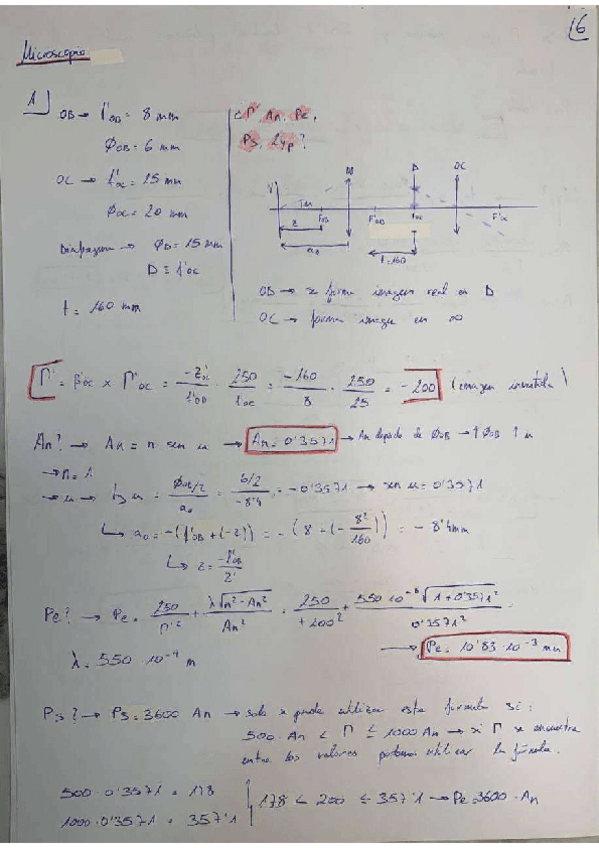 16
Microscopio
1
OB → f'OB = 8 mm
ØOB = 6 mm
OC → f'OC = 25 mm
ØOC = 20 mm
Diafragma → ØD = 15 mm
D ≡ f'OC
t = 160 mm
¿Γ', An, Pe,
Ps, Lyp?
OB D OC
FOB F'OB fOC F'OC
z
a0
t=160
OB → se forma imagen real en D
OC → forma imagen en ∞
Γ' = β'OC × Γ'OC = -z'OC / f'OB · 250 / fOC = -160 / 8 · 250 / 25 = -200 (imagen invertida)
An? → An = n sen u → An = 0'3571 → An depende de ØOB → ↑ ØOB ↑ u
→ n = 1
→ u → tg u = ØOB/2 / a0 = 6/2 / -8'4 = -0'3571 → sen u = 0'3571
↳ a0 = -(f'OB + (-z)) = -(8 - (-8² / 160)) = -8'4mm
↳ z = -f'OB / z'
Pe? → Pe = 250 / Γ'² + λ√n² - An² / An² = 250 / +200² + 550 10⁻⁶ √1+0'3571² / 0'3571²
λ = 550 10⁻⁴ m
→ Pe = 10'83 · 10⁻³ mm
Ps? → Ps = 3600 An → solo se puede utilizar esta formula si:
500 · An < Γ ≤ 1000 An → si Γ se encuentra
entre los valores podemos utilizar la fórmula.
500 · 0'3571 = 178
1000 · 0'3571 = 357'1
178 < 200 ≤ 357'1 → Pe = 3600 · An